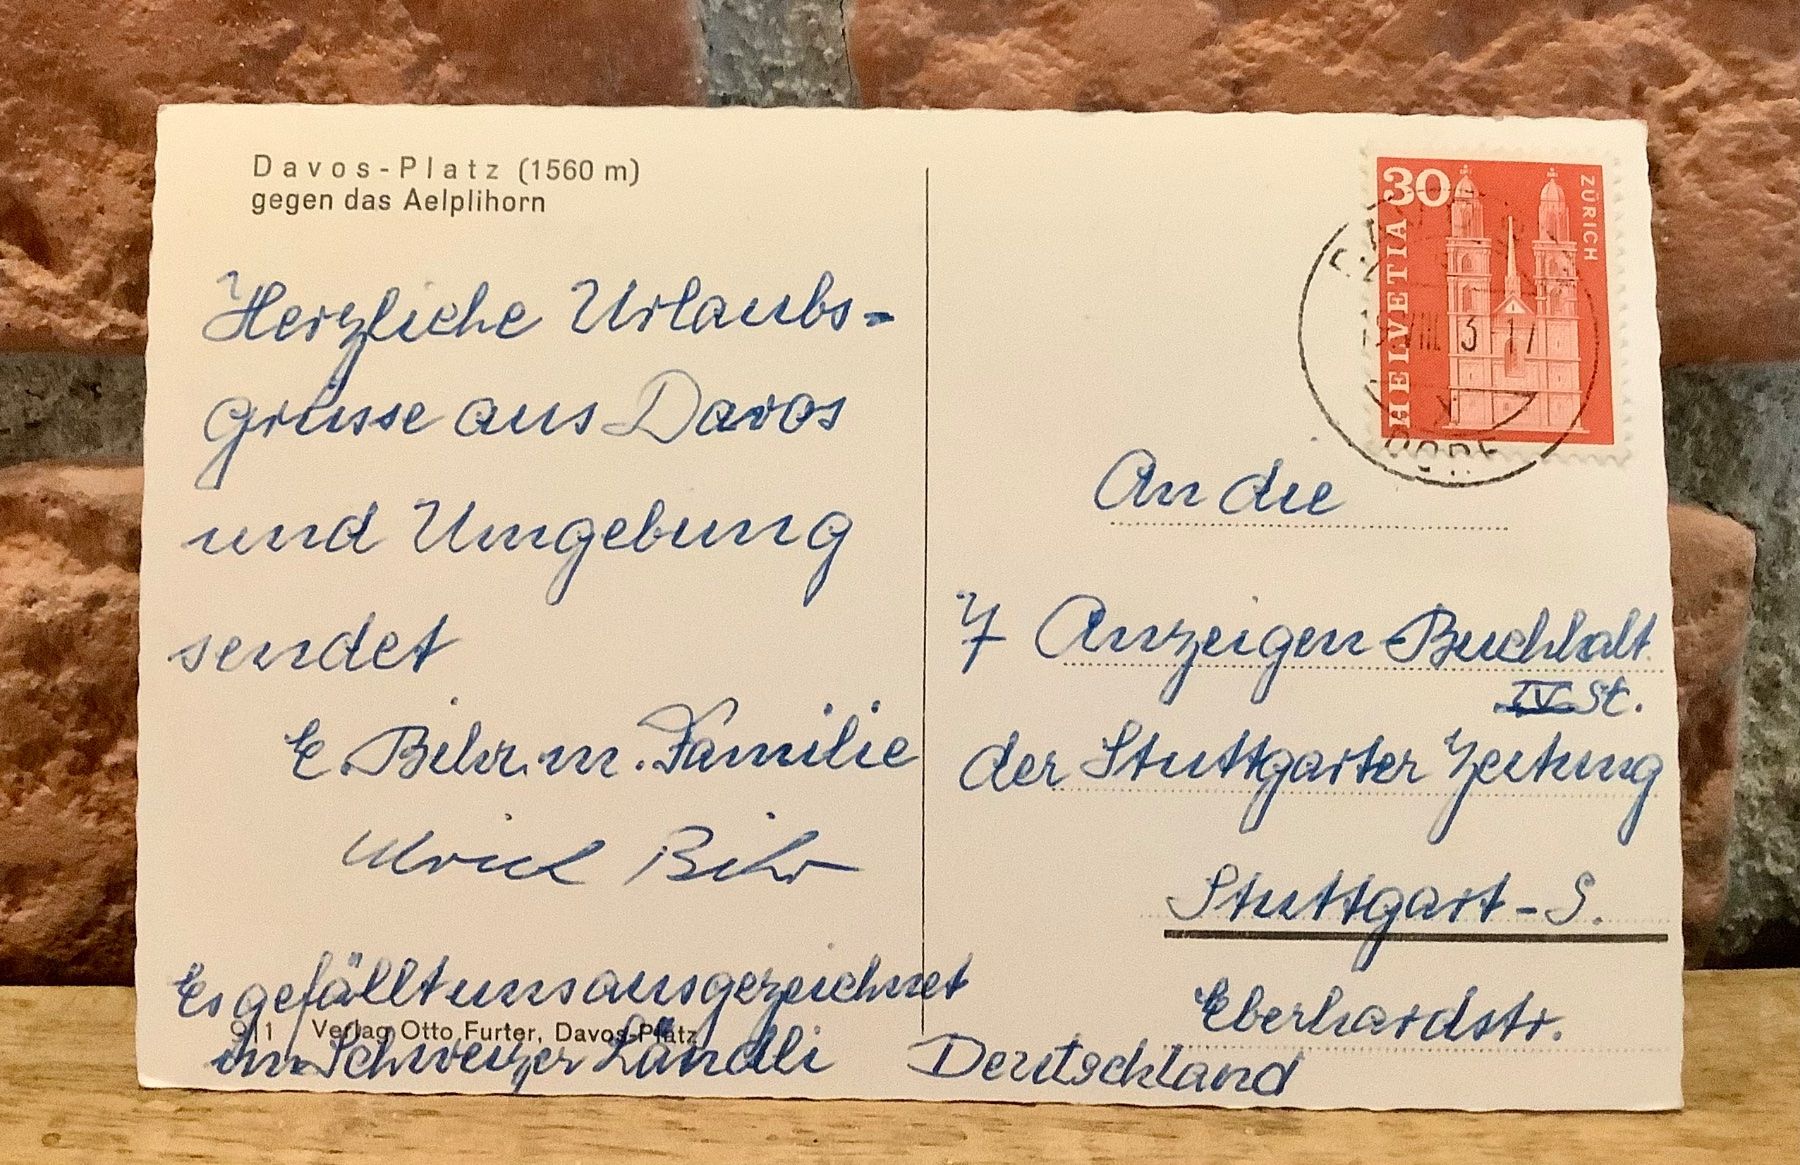 Davos-Platz (1560 m)
gegen das Aelplihorn
Herzliche Urlaubs-
grüsse aus Davos
und Umgebung
sendet
E. Bihr. m. Familie
Ulrich Bihr
Es gefällt uns ausgezeichnet
im Schweizer Ländli
911 Verlag Otto Furter, Davos-Platz
30
HELVETIA
ZÜRICH
VIII
DORF
An die
Anzeigen-Buchhalt.
IV St.
der Stuttgarter Zeitung
Stuttgart-S.
Eberhardstr.
Deutschland